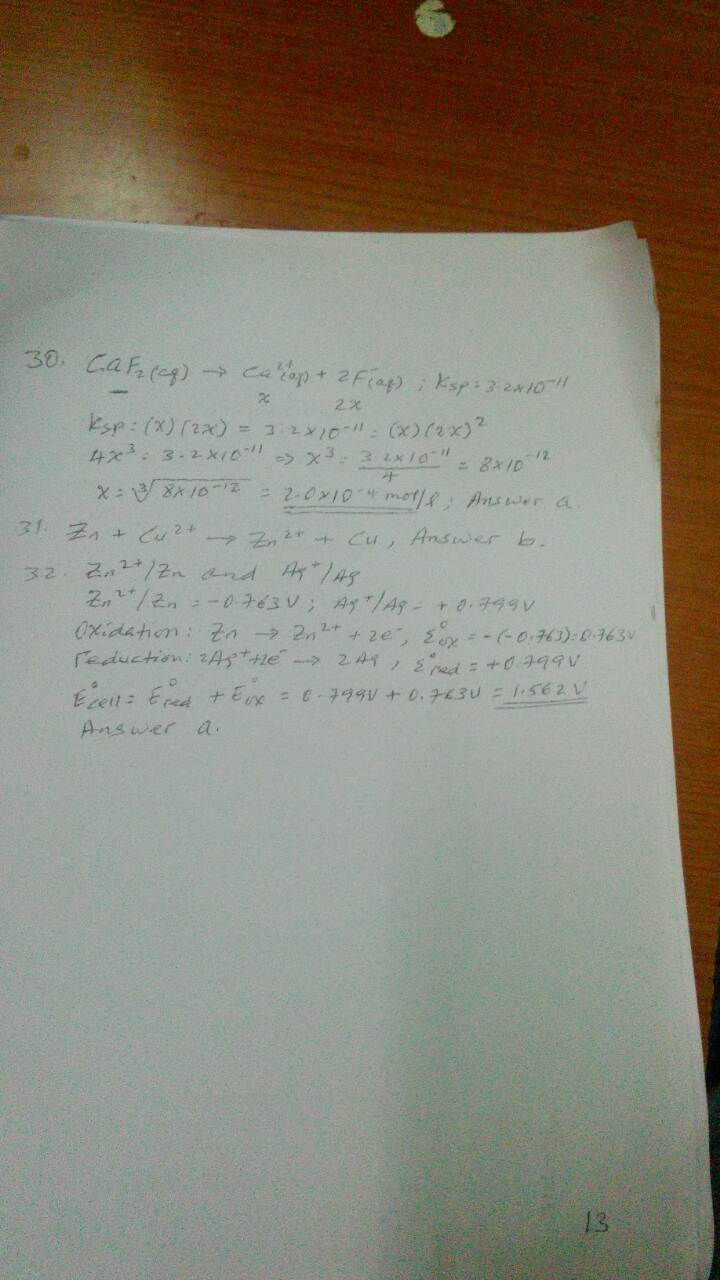 30. CaF₂(aq) → Ca²⁺(aq) + 2F⁻(aq) ; Ksp = 3.2x10⁻¹¹
x 2x
Ksp = (x)(2x) = 3.2x10⁻¹¹ = (x)(2x)²
4x³ = 3.2x10⁻¹¹ => x³ = 3.2x10⁻¹¹/4 = 8x10⁻¹²
x = ³√8x10⁻¹² = 2.0x10⁻⁴ mol/l ; Answer a.
31. Zn + Cu²⁺ → Zn²⁺ + Cu, Answer b.
32. Zn²⁺/Zn and Ag⁺/Ag
Zn²⁺/Zn = -0.763V ; Ag⁺/Ag = +0.799V
Oxidation: Zn → Zn²⁺ + 2e⁻, ε°ox = -(-0.763)=0.763V
reduction: 2Ag⁺+2e⁻ → 2Ag, ε°red = +0.799V
E°cell = E°red + E°ox = 0.799V + 0.763V = 1.562V
Answer a.
13